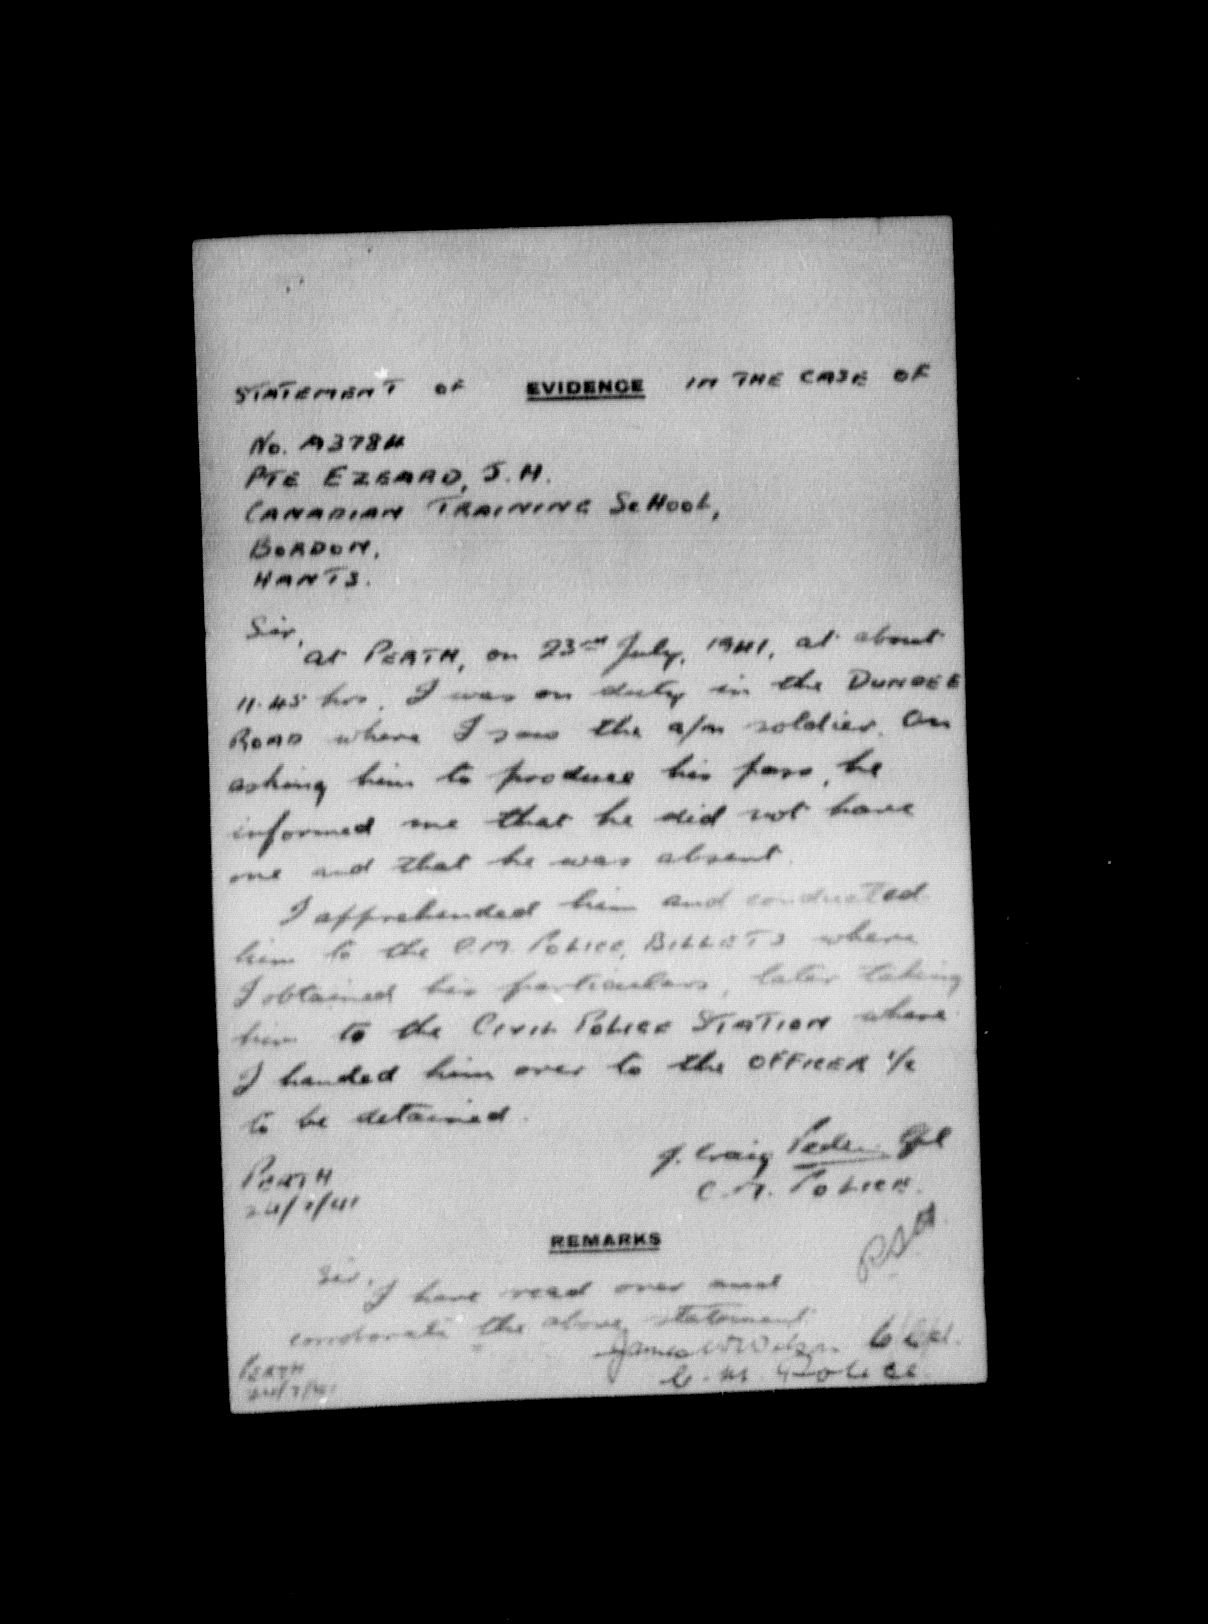 STATEMENT OF EVIDENCE IN THE CASE OF
No. A3784
PTE EZEARD, J.H.
CANADIAN TRAINING SCHOOL,
BORDON,
HANTS.
Sir,
At PERTH, on 23rd July, 1941, at about
11.45 hrs. I was on duty in the DUNDEE
ROAD where I saw the a/m soldier. On
asking him to produce his pass, he
informed me that he did not have
one and that he was absent.
I apprehended him and conducted
him to the C.M. POLICE, BILLETS where
I obtained his particulars, later taking
him to the CIVIL POLICE STATION where
I handed him over to the OFFICER i/c
to be detained.
J. Craig Peden Cpl
PERTH
C.M. POLICE.
24/7/41
REMARKS
Sir,
I have read over and
corroborate the above statement
James W Wilson Cpl.
PERTH
C.M. Police
24/7/41